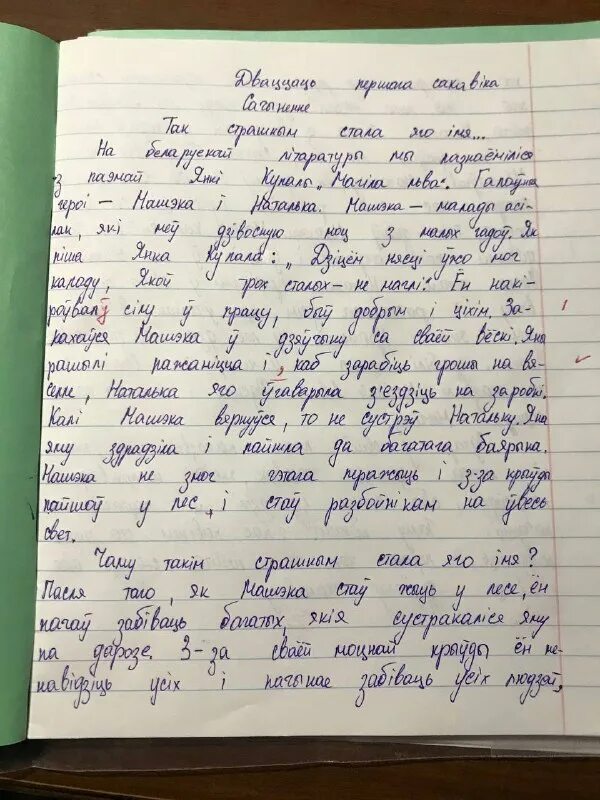 Дваццаць першага сакавіка
Сачыненне
Так страшным стала яго імя...
На беларускай літаратуры мы пазнаёміліся
з паэмай Янкі Купалы „Магіла льва". Галоўныя
героі — Машэка і Наталька. Машэка — малады асі-
лак, які меў дзівосную моц з малых гадоў. Як
піша Янка Купала: „Дзіцём нясці ўжо мог
калоду, Якой трох сталых — не маглі." Ён накі-
роўваў сілу ў працу, быў добрым і ціхім. За-
кахаўся Машэка ў дзяўчыну са сваёй вёскі. Яны
рашылі пажаніцца і, каб зарабіць грошы на вя-
селле, Наталька яго ўгаварыла з'ездзіць на заробкі.
Калі Машэка вярнуўся, то не сустрэў Натальку. Яна
яму здрадзіла і пайшла да багатага баярына.
Машэка не змог гэтага перажыць і з-за крыўды
пайшоў у лес, і стаў разбойнікам на ўвесь
свет.
Чаму такім страшным стала яго імя?
Пасля таго, як Машэка стаў жыць у лесе, ён
пачаў забіваць багатых, якія сустракаліся яму
па дарозе. З-за сваёй моцнай крыўды ён не-
навідзіць усіх і пачынае забіваць ўсіх людзей,